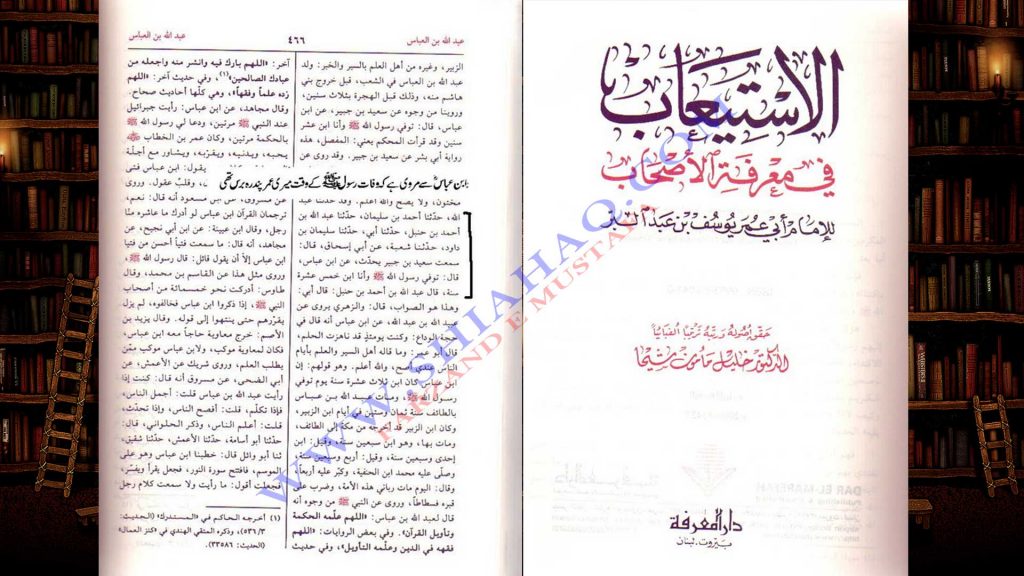 عبد الله بن العباس
٤٦٦
عبد الله بن العباس
الزبير، وغيره من أهل العلم بالسير والخبر: ولد
عبد الله بن العباس في الشعب، قبل خروج بني
هاشم منه، وذلك قبل الهجرة بثلاث سنين،
وروينا من وجوه عن سعيد بن جبير، عن ابن
عباس، قال: توفي رسول الله ﷺ وأنا ابن عشر
سنين وقد قرأت المحكم يعني: المفصل، هذه
رواية أبي بشر عن سعيد بن جبير، وقد روى عن
ابن عباس سے مروی ہے کہ وفات رسول ﷺ کے وقت میری عمر پندرہ برس تھی
مختون، ولا يصح والله أعلم. وقد حدثنا عبد
الله، حدّثنا أحمد بن سليمان، حدّثنا عبد الله بن
أحمد بن حنبل، حدّثنا أبي، حدّثنا سليمان بن
داود، حدّثنا شعبة، عن أبي إسحاق، قال:
سمعت سعيد بن جبير يحدّث، عن ابن عباس،
قال: توفي رسول الله ﷺ وأنا ابن خمس عشرة
سنة، قال عبد الله بن أحمد بن حنبل: قال أبي:
وهذا هو الصواب، قال: والزهري يروي عن
عبيد الله بن عبد الله، عن ابن عباس أنه قال في
حجة الوداع: وكنت يومئذٍ قد ناهزت الحلم،
قال أبو عمر: وما قاله أهل السير والعلم بأيام
الناس عندي أصح، والله أعلم. وهو قولهم: إن
ابن عباس كان ابن ثلاث عشرة سنة يوم توفي
رسول الله ﷺ، ومات عبد الله بن عباس
بالطائف سنة ثمان وستين في أيام ابن الزبير،
وكان ابن الزبير قد أخرجه من مكة إلى الطائف،
ومات بها، وهو ابن سبعين سنة، وقيل: ابن
إحدى وسبعين سنة، وقيل: أربع وسبعين سنة،
وصلّى عليه محمد ابن الحنفية، وكبّر عليه أربعاً،
وقال: اليوم مات رباني هذه الأمة، وضرب على
قبره فسطاطاً، وروي عن النبي ﷺ من وجوه أنه
قال لعبد الله بن عباس: «اللهم علّمه الحكمة
وتأويل القرآن». وفي بعض الروايات: «اللهم
فقهه في الدين وعلّمه التأويل»، وفي حديث
آخر: «اللهم بارك فيه وانشر منه واجعله من
عبادك الصالحين»(١)، وفي حديث آخر: «اللهم
زده علماً وفقهاً»، وهي كلّها أحاديث صحاح.
وقال مجاهد، عن ابن عباس: رأيت جبرائيل
عند النبي ﷺ مرتين، ودعا لي رسول الله ﷺ
بالحكمة مرتين، وكان عمر بن الخطاب
يحبه، ويدنيه، ويقرّبه، ويشاور مع أجلّة
يقول: ابن عباس فتى
، وقلب عقول. وروى
مسروق، عن ابن مسعود أنه قال: نعم،
ترجمان القرآن ابن عباس لو أدرك ما عاشره منّا
رجل، وقال ابن عيينة: عن ابن أبي نجيح، عن
مجاهد، أنه قال: ما سمعت فتياً أحسن من فتيا
ابن عباس إلّا أن يقول قائل: قال رسول الله ﷺ،
وروى مثل هذا عن القاسم بن محمد، وقال
طاوس: أدركت نحو خمسمائة من أصحاب
النبي ﷺ، إذا ذكروا ابن عباس فخالفوه، لم يزل
يقرّرهم حتى ينتهوا إلى قوله. وقال يزيد بن
الأصم: خرج معاوية حاجاً معه ابن عباس،
فكان لمعاوية موكب، ولابن عباس موكب ممّن
يطلب العلم، وروى شريك عن الأعمش، عن
أبي الضحى، عن مسروق أنه قال: كنت إذا
رأيت عبد الله بن عباس قلت: أجمل الناس،
فإذا تكلّم، قلت: أفصح الناس، وإذا تحدّث،
قلت: أعلم الناس، وذكر الحلواني، قال:
حدّثنا أبو أسامة، حدّثنا الأعمش، حدّثنا شقيق،
ثنا أبو وائل قال: خطبنا ابن عباس وهو على
الموسم، فافتتح سورة النور، فجعل يقرأ ويفسّر،
فجعلت أقول: ما رأيت ولا سمعت كلام رجل
(١) أخرجه الحاكم في «المستدرك» (الحديث:
٥٣٦/٣)، وذكره المتقي الهندي في «كنز العمال»
(الحديث: ٣٣٥٨٦).
الاستيعاب
في معرفة الأصحاب
للإمام أبي عمر يوسف بن عبد البر
حقق أصوله ورتبه ترتيبا ألفبائيا
الدكتور خليل مأمون شيحا
DAR EL-MAREFAH
دار المعرفة
بيروت. لبنان
WWW.SHIAHAQ.COM
FARZAND E MUSTAFA